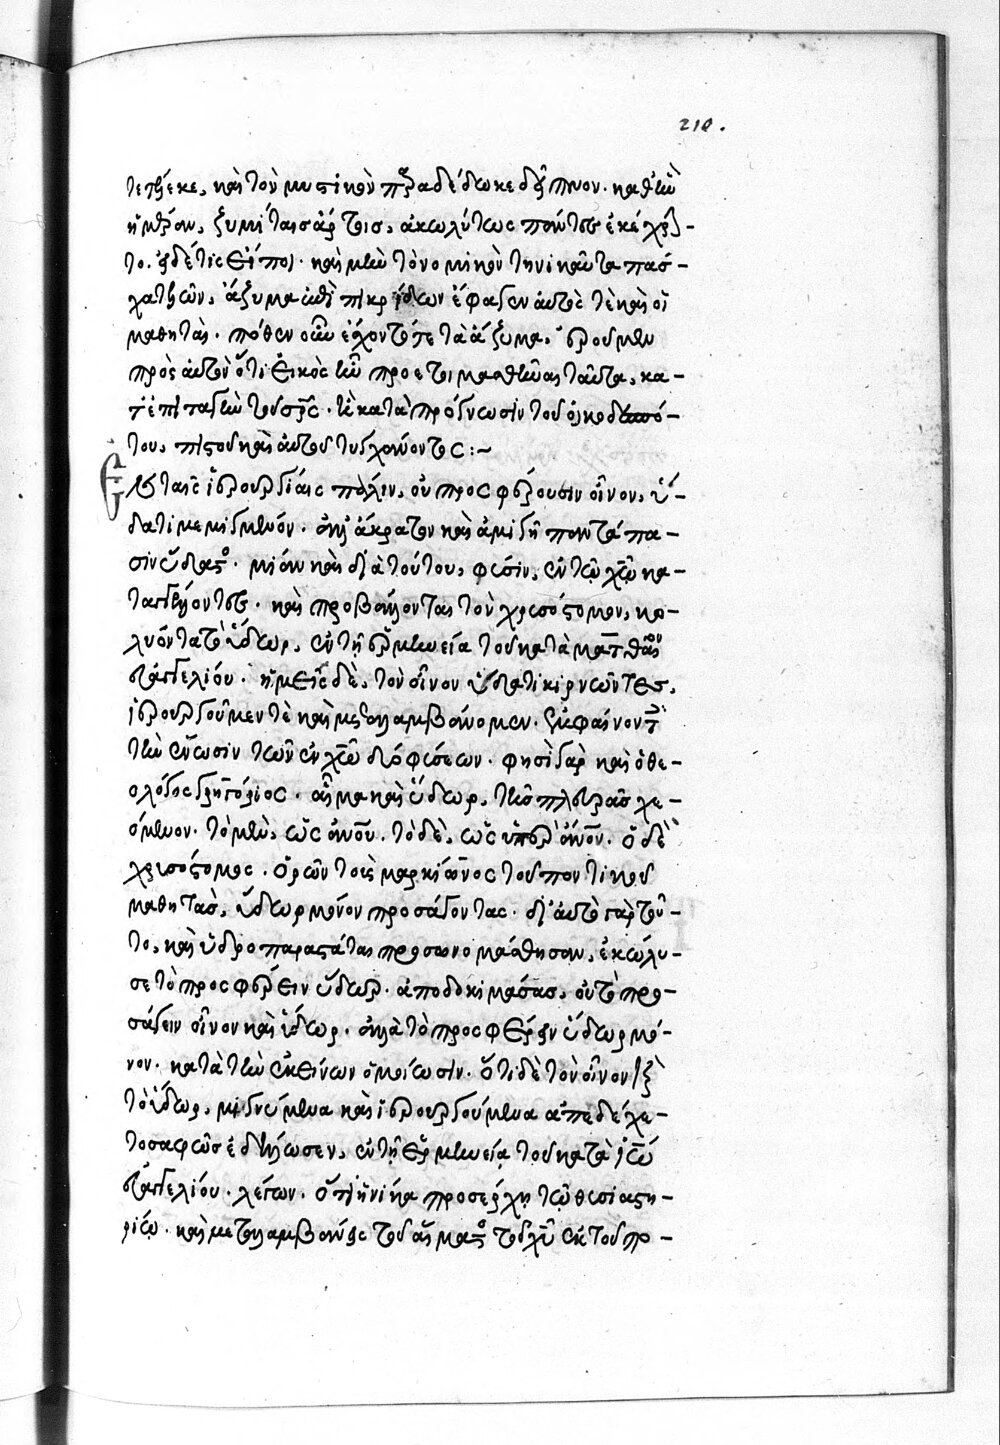 210.
τέθηκε, καὶ τὸν μυστικὸν παραδέδωκε δεῖπνον. καθ' ἣν
ἡμέραν, ζυμίταις ἄρτοις, ἀκωλύτως πάντες ἐκέχρη-
το. εἰ δέ τις εἴποι. καὶ μὴν τὸ νομικὸν τηνικαῦτα πάσ-
χα θῦον, ἄζυμα ἐπὶ πικρίδων ἔφαγεν αὐτός τε καὶ οἱ
μαθηταί. πόθεν οὖν ἔχον τότε τὰ ἄζυμα, ἐροῦμεν
πρὸς αὐτὸν ὅτι εἰκὸς ἦν προετοιμασθῆναι ταῦτα, κα-
τ' ἐπιταγὴν τοῦ σρς. ἢ κατὰ πρόγνωσιν τοῦ οἰκοδεσπό-
του, πιστοῦ καὶ αὐτοῦ τυγχάνοντος :~
Ἐν ταῖς ἱερουργίαις πάλιν, οὐ προσφέρουσιν οἶνον, ὕ-
δατι μεμιγμένον. ἀλλ' ἄκρατον καὶ ἀμιγῆ παντάπα-
σιν ὕδατος. μίαν καὶ διὰ τούτου, φύσιν, ἐν τῷ χῷ κα-
ταγγέλλοντες. καὶ προβάλλονται τὸν χρυσόστομον, κω-
λύοντα τὸ ὕδωρ, ἐν τῇ ἑρμηνείᾳ τοῦ κατὰ ματθαῖον
εὐαγγελίου. ἡμεῖς δὲ, τὸν οἶνον ὕδατι κιρνῶντες,
ἱερουργοῦμέν τε καὶ μεταλαμβάνομεν. ἐκφαίνοντες
τὴν ἕνωσιν τῶν ἐν χῷ δύο φύσεων. φησὶ γὰρ καὶ ὁ θε-
ολόγος γρηγόριος. αἷμα καὶ ὕδωρ, τῆς πλευρᾶς χε-
όμενον. τὸ μὲν, ὡς ἀνου. τὸ δὲ, ὡς ὑπὲρ ἄνον. ὁ δὲ
χρυσόστομος. ὁρῶν τοὺς μαρκίωνος τοῦ ποντικοῦ
μαθητὰς, ὕδωρ μόνον προσάγοντας. δι' αὐτὸ γὰρ τοῦ-
το, καὶ ὑδροπαραστάται προσωνομάσθησαν, ἐκώλυ-
σε τὸ προσφέρειν ὕδωρ. ἀποδοκιμάσας, οὐ τὸ προ-
σάγειν οἶνον καὶ ὕδωρ. ἀλλὰ τὸ προσφέρειν ὕδωρ μό-
νον. κατὰ τὴν ἐκείνων ὁμοίωσιν. ὅτι δὲ τὸν οἶνον καὶ
τὸ ὕδωρ, μιγνύμενα καὶ ἱερουργούμενα ἀπεδέχε-
το σαφῶς ἐδήλωσεν, ἐν τῇ ἑρμηνείᾳ τοῦ κατὰ ἰω
εὐαγγελίου. λέγων. ὅτι ἡνίκα προσέρχῃ τῷ θυσιαστη-
ρίῳ. καὶ μεταλαμβάνεις τοῦ αἵματος τοῦ χυ ἐκ τοῦ πο-